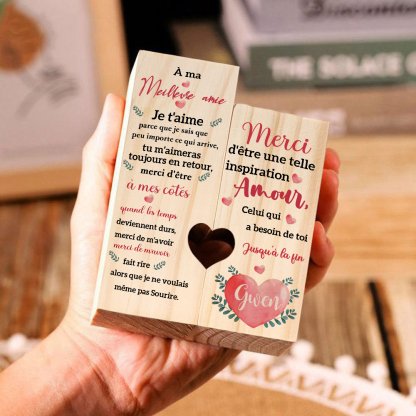 À ma
Meilleure amie
Je t'aime
parce que je sais que
peu importe ce qui arrive,
tu m'aimeras
toujours en retour,
merci d'être
à mes côtés
quand les temps
deviennent durs,
merci de m'avoir
merci de mouvoir
fait rire
alors que je ne voulais
même pas Sourire.
Merci
d'être une telle
inspiration
Amour,
Celui qui
a besoin de toi
Jusqu'à la fin
Gwen
THE SOLACE O